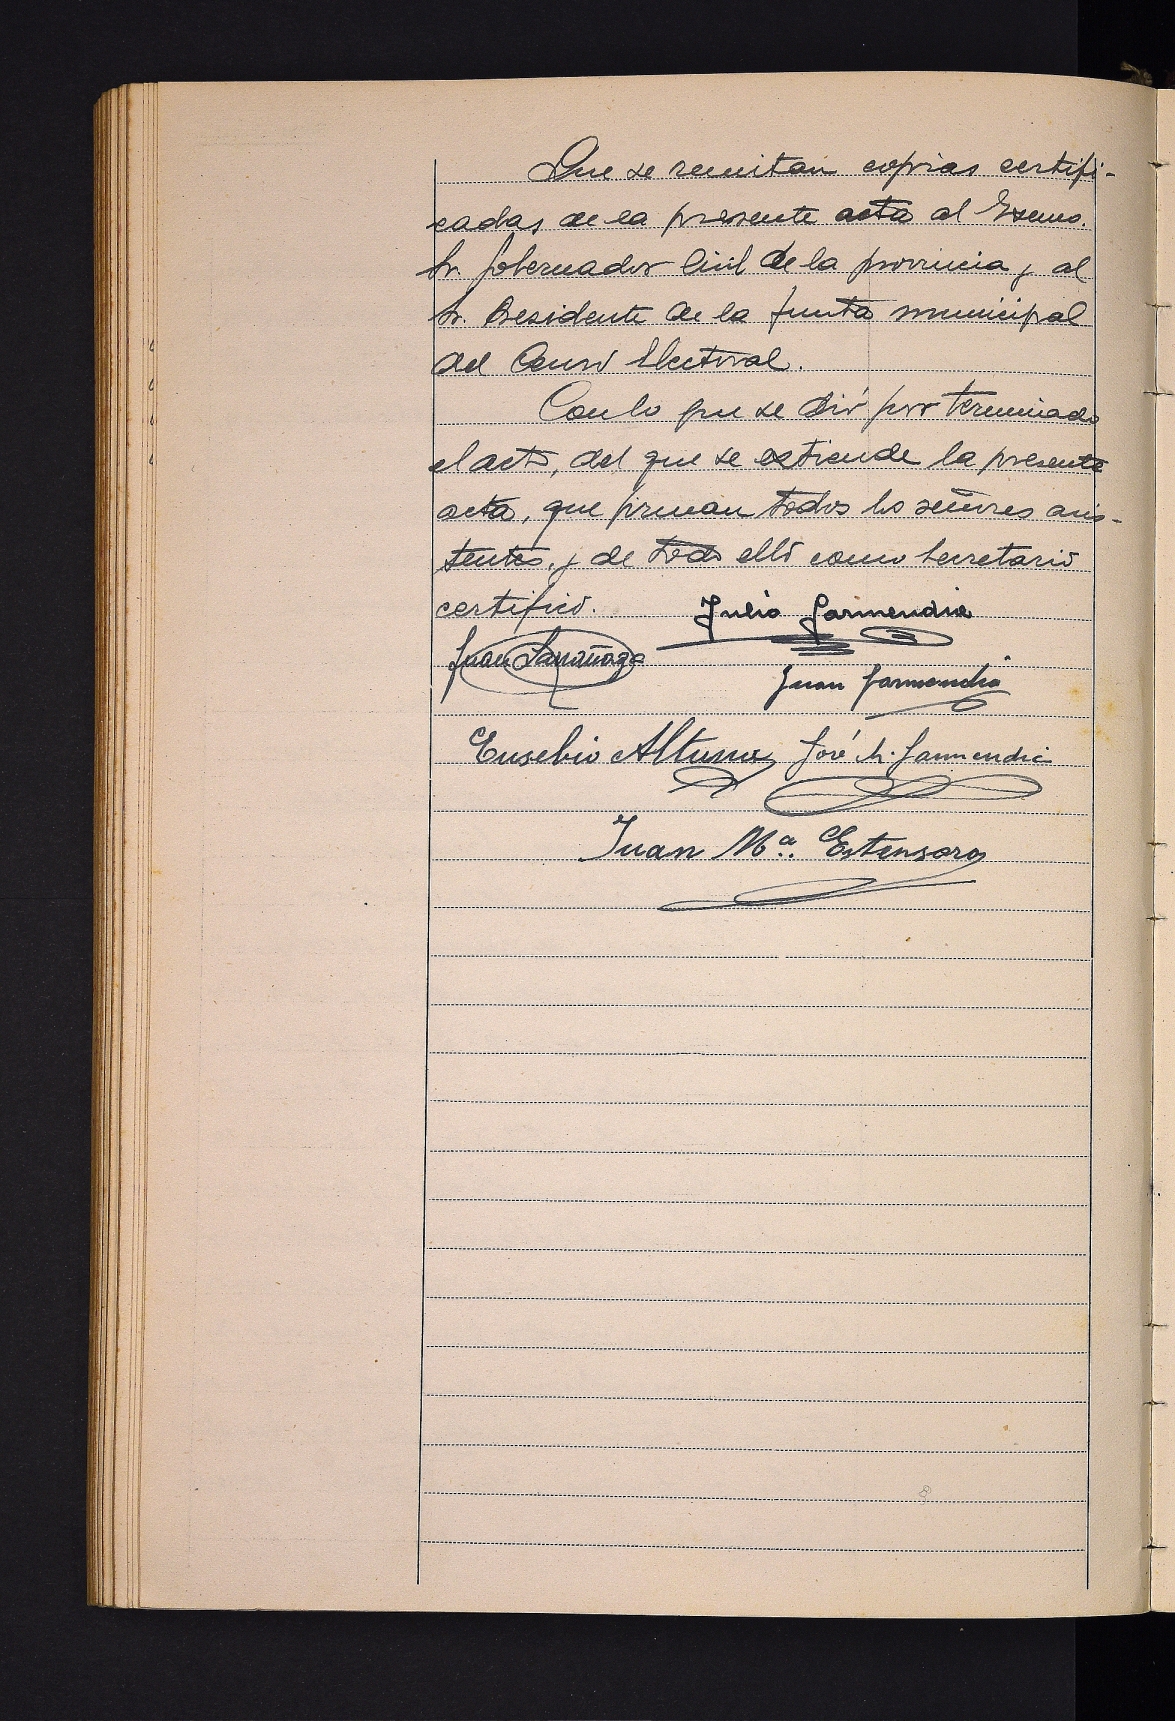 Que se remitan copias certifi-
cadas de la presente acta al Excmo.
Sr. Gobernador Civil de la provincia y al
Sr. Presidente de la Junta municipal
del Censo Electoral.
Con lo que se dió por terminado
el acto, del que se extiende la presente
acta, que firman todos los señores asis-
tentes, y de todo ello como Secretario
certifico.
Julio Garmendia
Juan Larrañaga
Juan Garmendia
Eusebio Altuna José M. Garmendia
Juan Mª. Estensoro